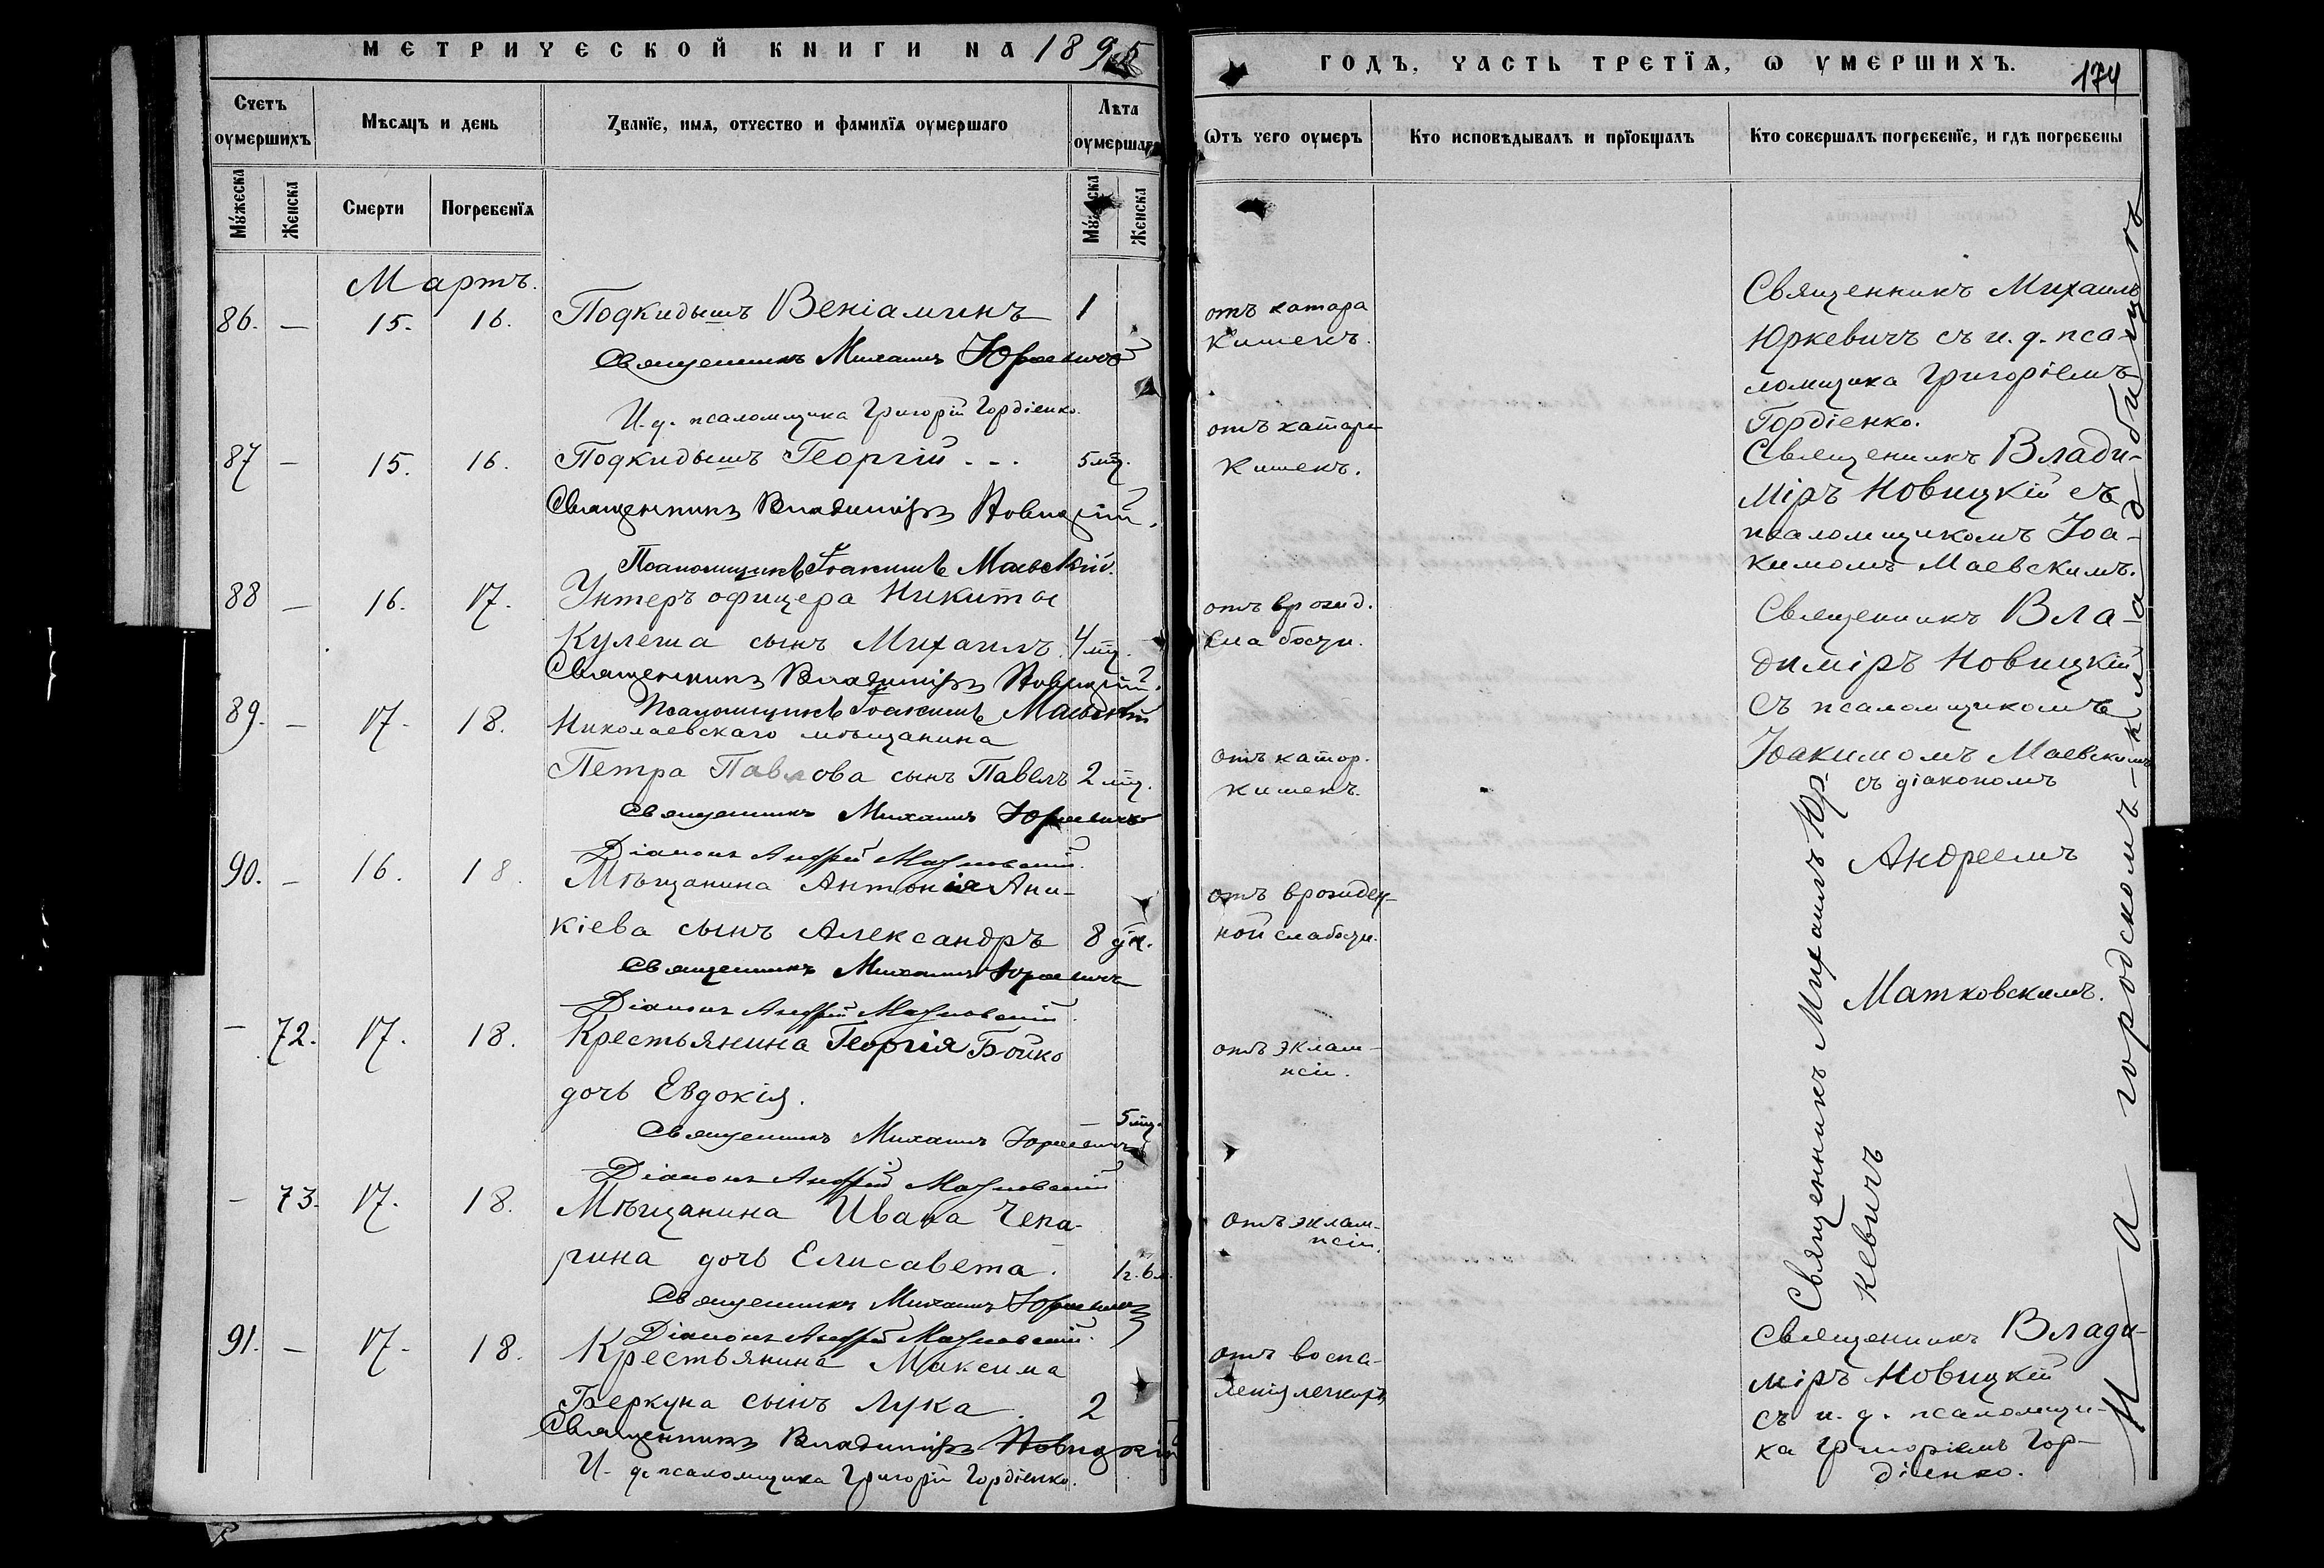 МЕТРИЧЕСКОЙ КНИГИ НА 1895
Счетъ оумершихъ
Мѣсяцъ и день
Званїе, имя, отчество и фамилїя оумершаго
Лѣта оумершаго
Мужеска
Женска
Смерти
Погребенїя
Мужеска
Женска
Мартъ.
86. — 15. 16. Подкидышъ Веніаминъ 1
Священникъ Михаилъ Юркевичъ
И. д. псаломщика Григорій Гордіенко.
87 — 15. 16. Подкидышъ Георгій - - . 5 мц.
Священникъ Владиміръ Новицкій.
Псаломщикъ Іоакимъ Маевскій.
88 — 16. 17. Унтеръ офицера Никиты
Кулеша сынъ Михаилъ. 4 мц.
Священникъ Владиміръ Новицкій.
Псаломщикъ Іоакимъ Маевскій
89. — 17. 18. Николаевскаго мѣщанина
Петра Павлова сынъ Павелъ 2 мц.
Священникъ Михаилъ Юркевичъ
Діаконъ Андрей Матковскій.
90. — 16. 18. Мѣщанина Антонія Ани-
кіева сынъ Александръ 8 дн.
Священникъ Михаилъ Юркевичъ
Діаконъ Андрей Матковскій.
— 72. 17. 18. Крестьянина Георгія Бойко
дочь Евдокія.
5 мц.
Священникъ Михаилъ Юркевичъ
Діаконъ Андрей Матковскій
— 73. 17. 18. Мѣщанина Ивана Чепа-
рина дочь Елисавета. 1 г. 6 м.
Священникъ Михаилъ Юркевичъ
Діаконъ Андрей Матковскій.
91. — 17. 18. Крестьянина Максима
Беркуна сынъ Лука 2
Священникъ Владиміръ Новицкій
И. д. псаломщика Григорій Гордіенко.
ГОДЪ, ЧАСТЬ ТРЕТЇЯ, Ѡ УМЕРШИХЪ.
174
Ѿтъ чего оумеръ
Кто исповѣдывалъ и прїобщалъ
Кто совершалъ погребенїе, и гдѣ погребены
отъ катара
кишекъ.
отъ катара
кишекъ.
отъ врожд.
слабости.
отъ катар.
кишекъ.
отъ врожден-
ной слабости.
отъ эклам-
псіи.
отъ эклам-
псіи.
отъ воспа-
ленія легкихъ
Священникъ Михаилъ
Юркевичъ съ и. д. пса-
ломщика Григоріемъ
Гордіенко.
Священникъ Влади-
міръ Новицкій съ
псаломщикомъ Іоа-
кимомъ Маевскимъ.
Священникъ Вла-
диміръ Новицкій
съ псаломщикомъ
Іоакимомъ Маевскимъ
Священникъ Михаилъ Юр-
кевичъ
съ діакономъ
Андреемъ
Матковскимъ.
Священникъ Влади-
міръ Новицкій
съ и. д. псаломщи-
ка Григоріемъ Гор-
діенко.
На городскомъ кладбищѣ